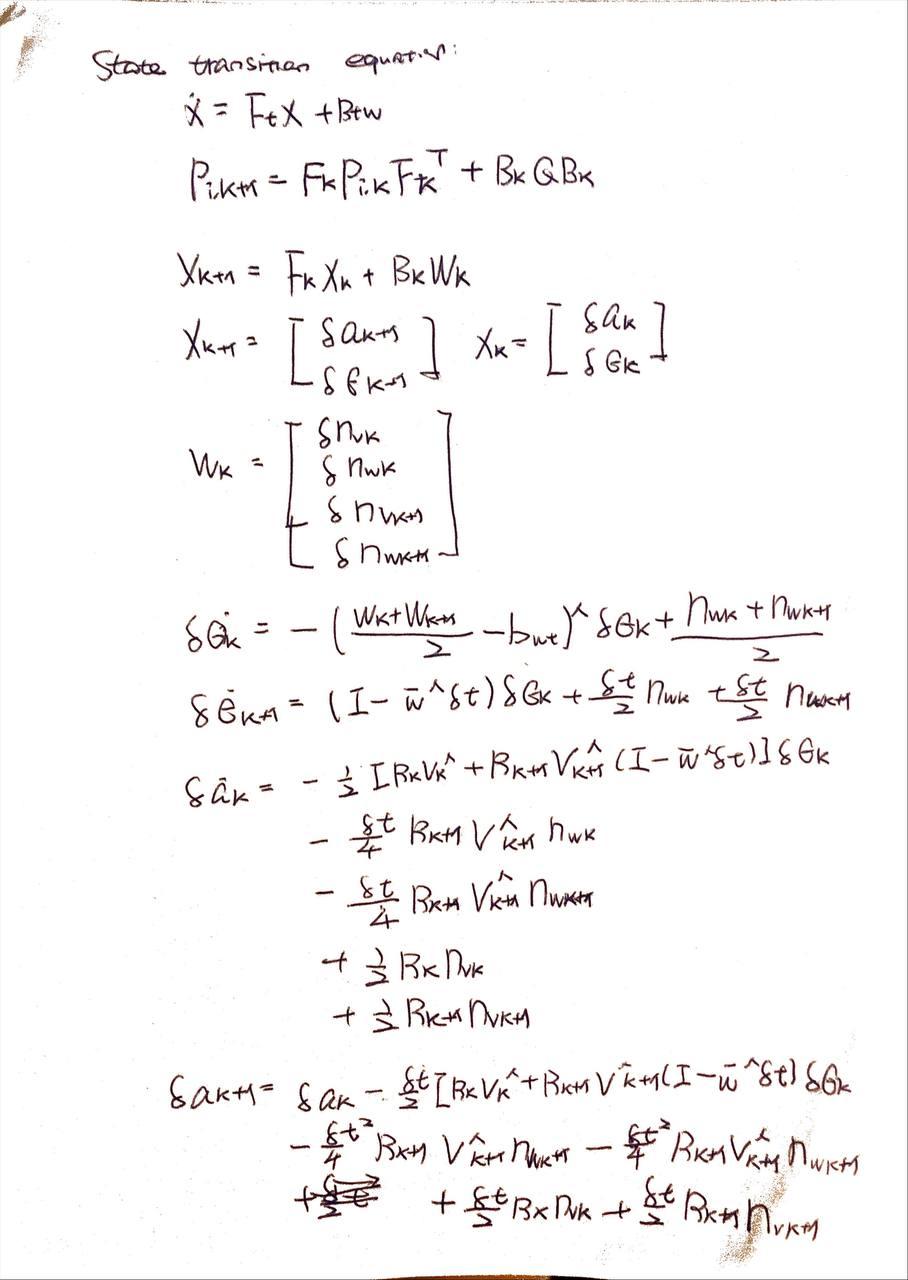 State transition equation:
Ẋ = F_t X + B_t w
P_{i,k+1} = F_k P_{i,k} F_k^T + B_k Q B_k
X_{k+1} = F_k X_k + B_k W_k
X_{k+1} = [ δa_{k+1} δθ_{k+1} ] X_k = [ δa_k δθ_k ]
W_k = [ δn_{vk} δn_{wk} δn_{vk+1} δn_{wk+1} ]
δθ̇_k = - ( (W_k + W_{k+1})/2 - b_{wt} )^∧ δθ_k + (n_{wk} + n_{wk+1})/2
δθ̇_{k+1} = (I - w̄^∧ δt) δθ_k + δt/2 n_{wk} + δt/2 n_{wk+1}
δȧ_k = - 1/2 [ R_k V_k^∧ + R_{k+1} V_{k+1}^∧ (I - w̄^∧ δt) ] δθ_k
- δt/4 R_{k+1} V_{k+1}^∧ n_{wk}
- δt/4 R_{k+1} V_{k+1}^∧ n_{wk+1}
+ 1/2 R_k n_{vk}
+ 1/2 R_{k+1} n_{vk+1}
δa_{k+1} = δa_k - δt/2 [ R_k V_k^∧ + R_{k+1} V_{k+1}^∧ (I - w̄^∧ δt) δθ_k
- δt²/4 R_{k+1} V_{k+1}^∧ n_{wk+1} - δt²/4 R_{k+1} V_{k+1}^∧ n_{wk+1}
+ δt/2 R_k n_{vk} + δt/2 R_{k+1} n_{vk+1}